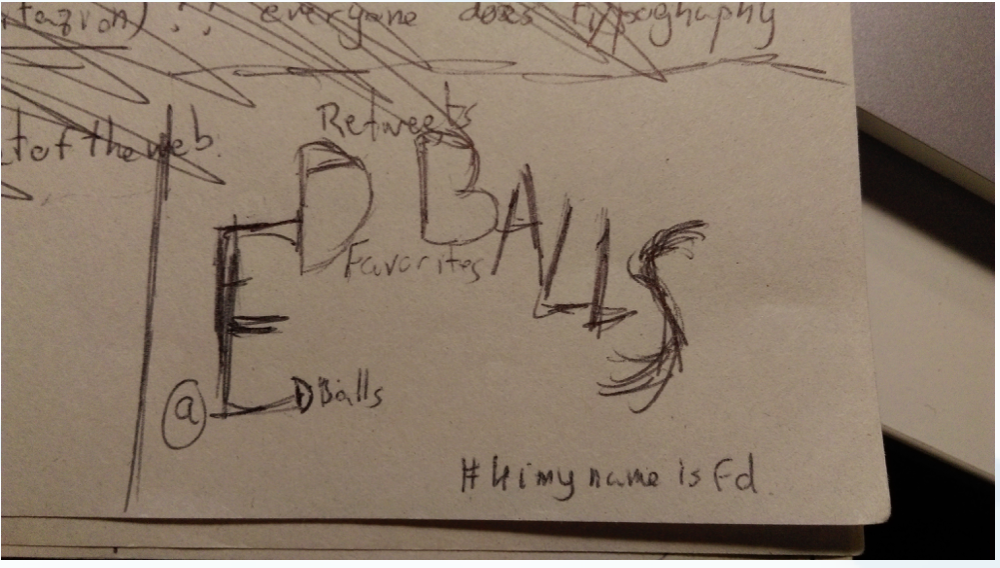 everyone does typography
t of the web.
Retweets
ED BALLS
Favorites
@EDBalls
#Hi my name is Ed.